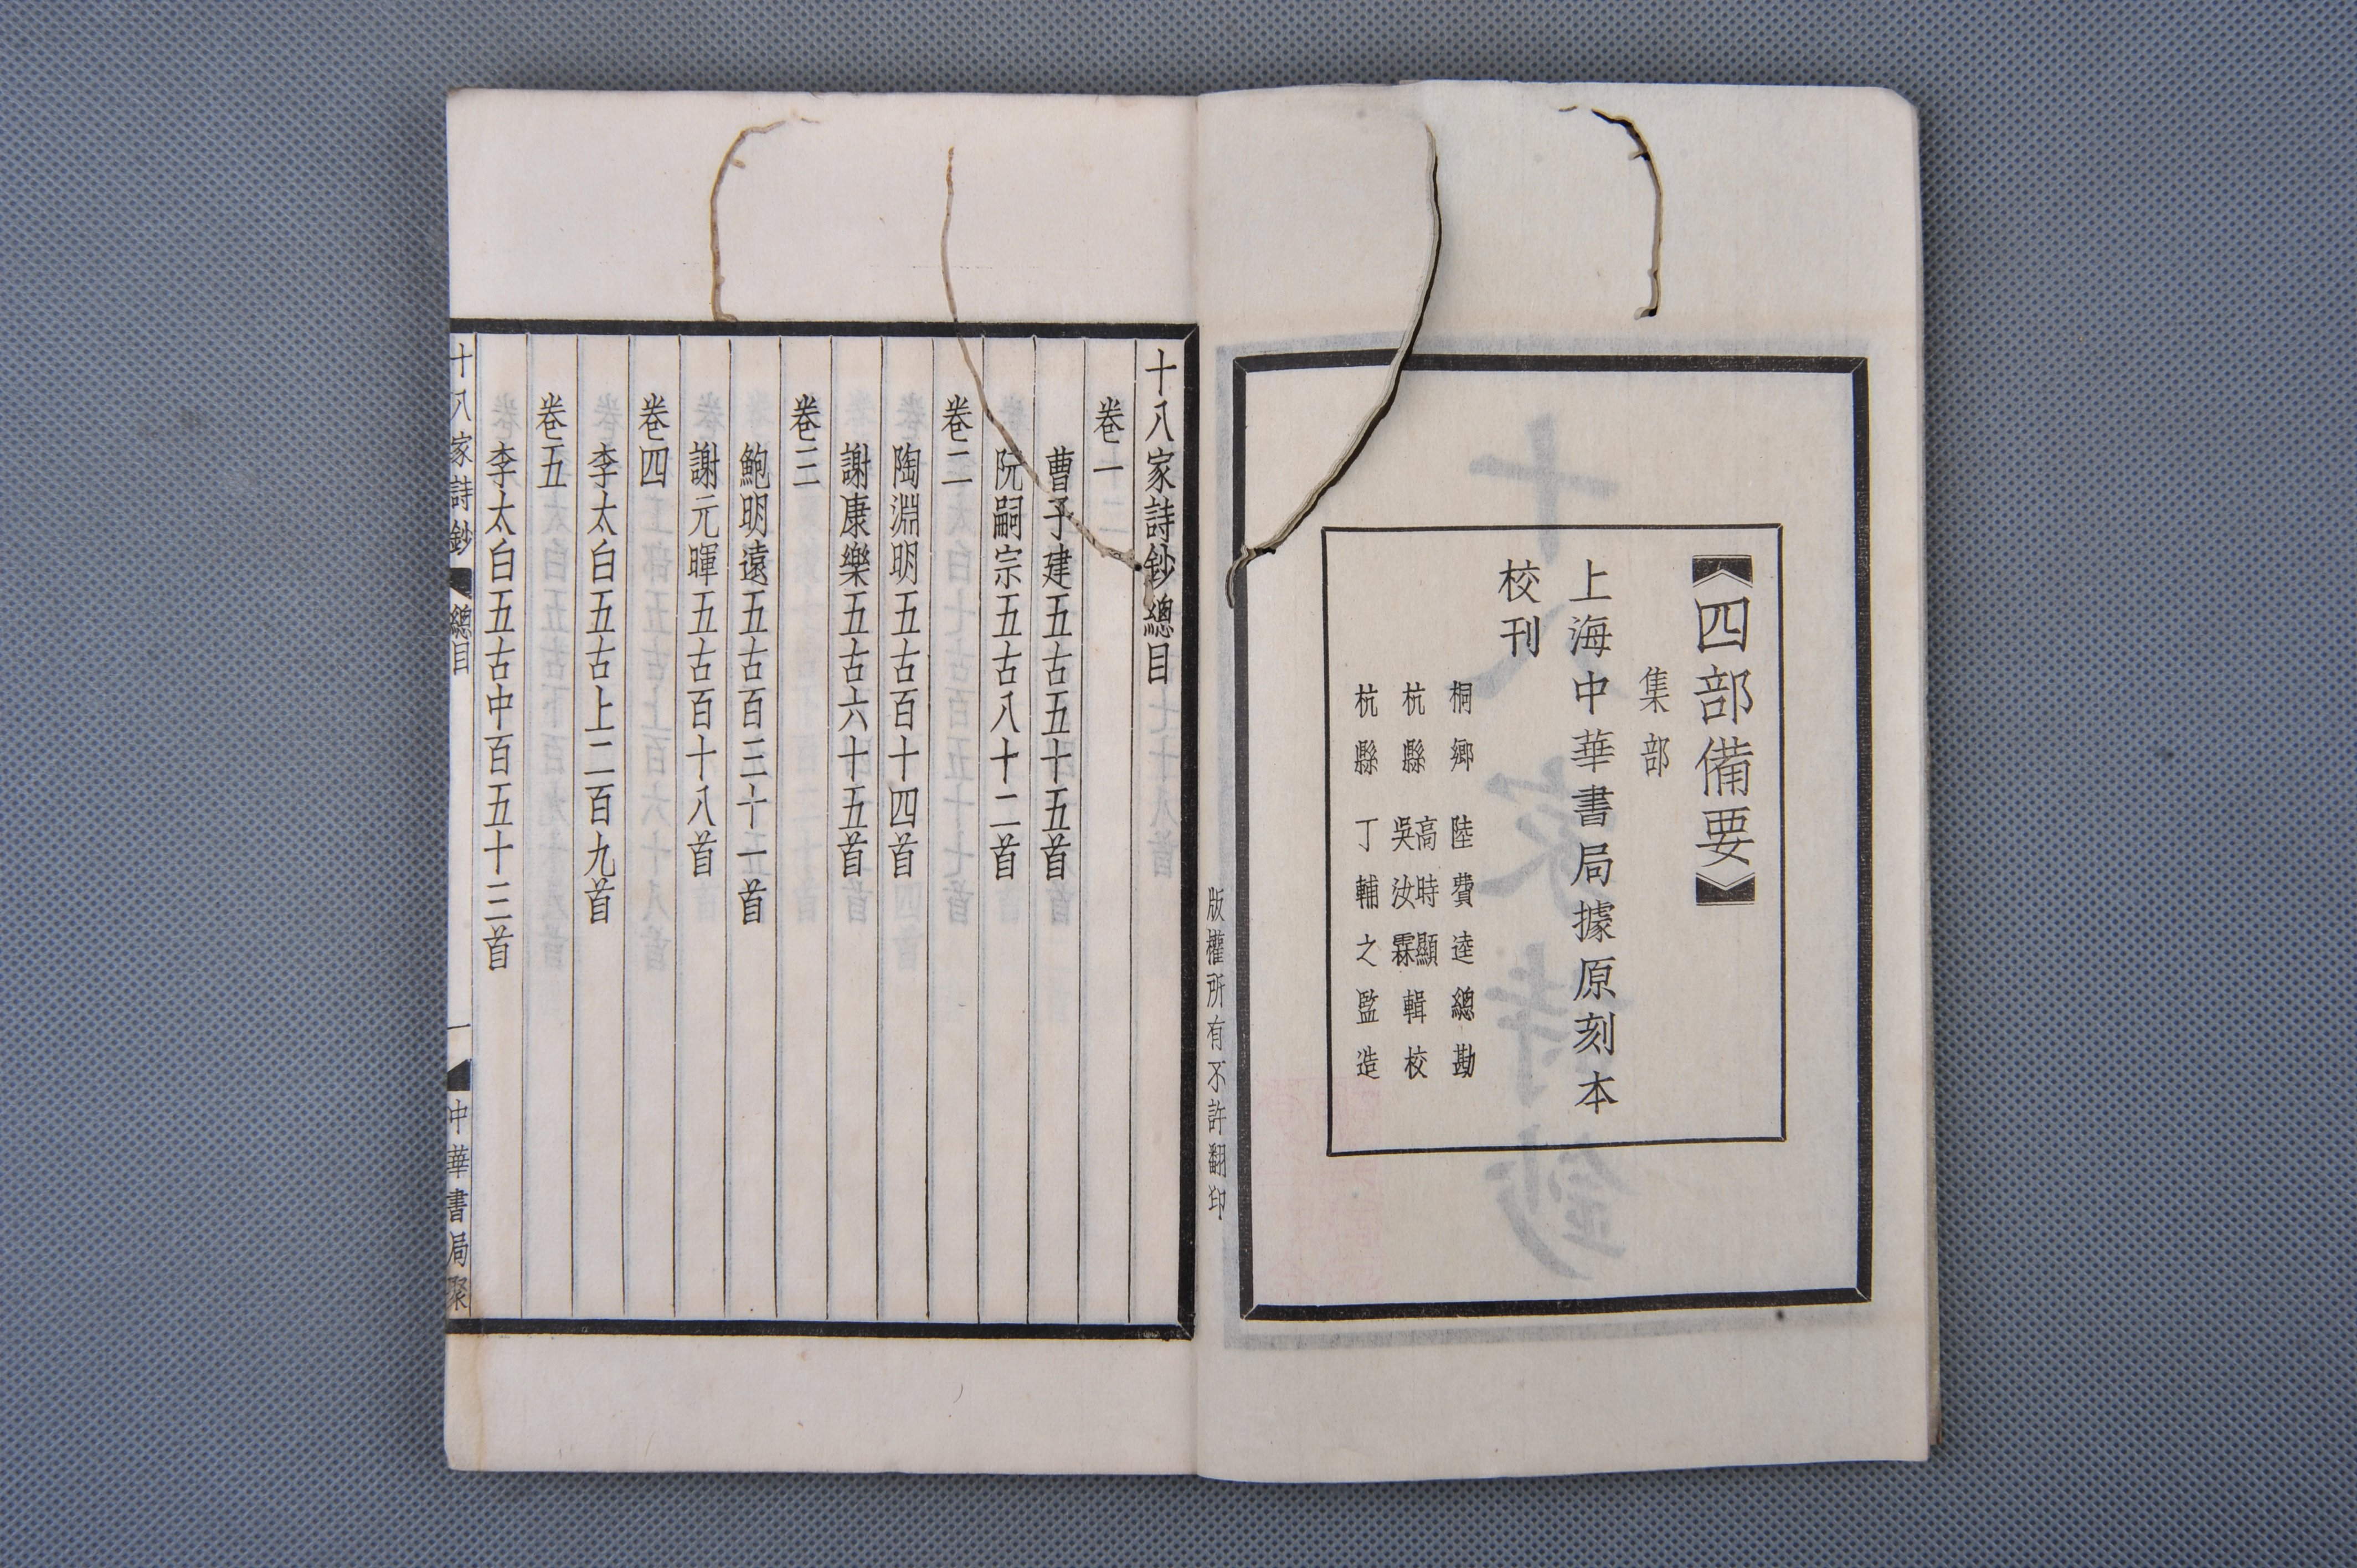 四部備要
集部
上海中華書局據原刻本
校刊
桐鄉 陸費逵 總勘
杭縣 高時顯 吳汝霖 輯校
杭縣 丁輔之 監造
版權所有不許翻印
十八家詩鈔總目
卷一
曹子建五古五十五首
阮嗣宗五古八十二首
卷二
陶淵明五古百十四首
謝康樂五古六十五首
卷三
鮑明遠五古百三十一首
謝元暉五古百十八首
卷四
李太白五古上二百九首
卷五
李太白五古中百五十三首
十八家詩鈔 總目 一 中華書局聚